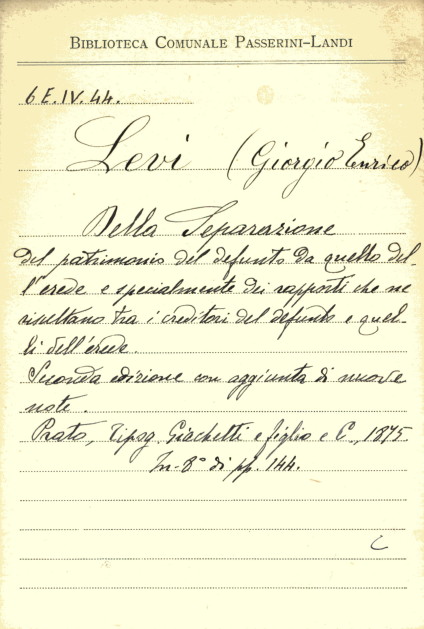 BIBLIOTECA COMUNALE PASSERINI-LANDI
6 E. IV. 44.
Levi (Giorgio Enrico)
Della Separazione
del patrimonio del defunto da quello del-
l'erede e specialmente dei rapporti che ne
risultano tra i creditori del defunto e quel-
li dell'erede.
Seconda edizione con aggiunta di nuove
note.
Prato, Tipog. Giachetti e figlio e C., 1875.
In-8° di pp. 144.
C